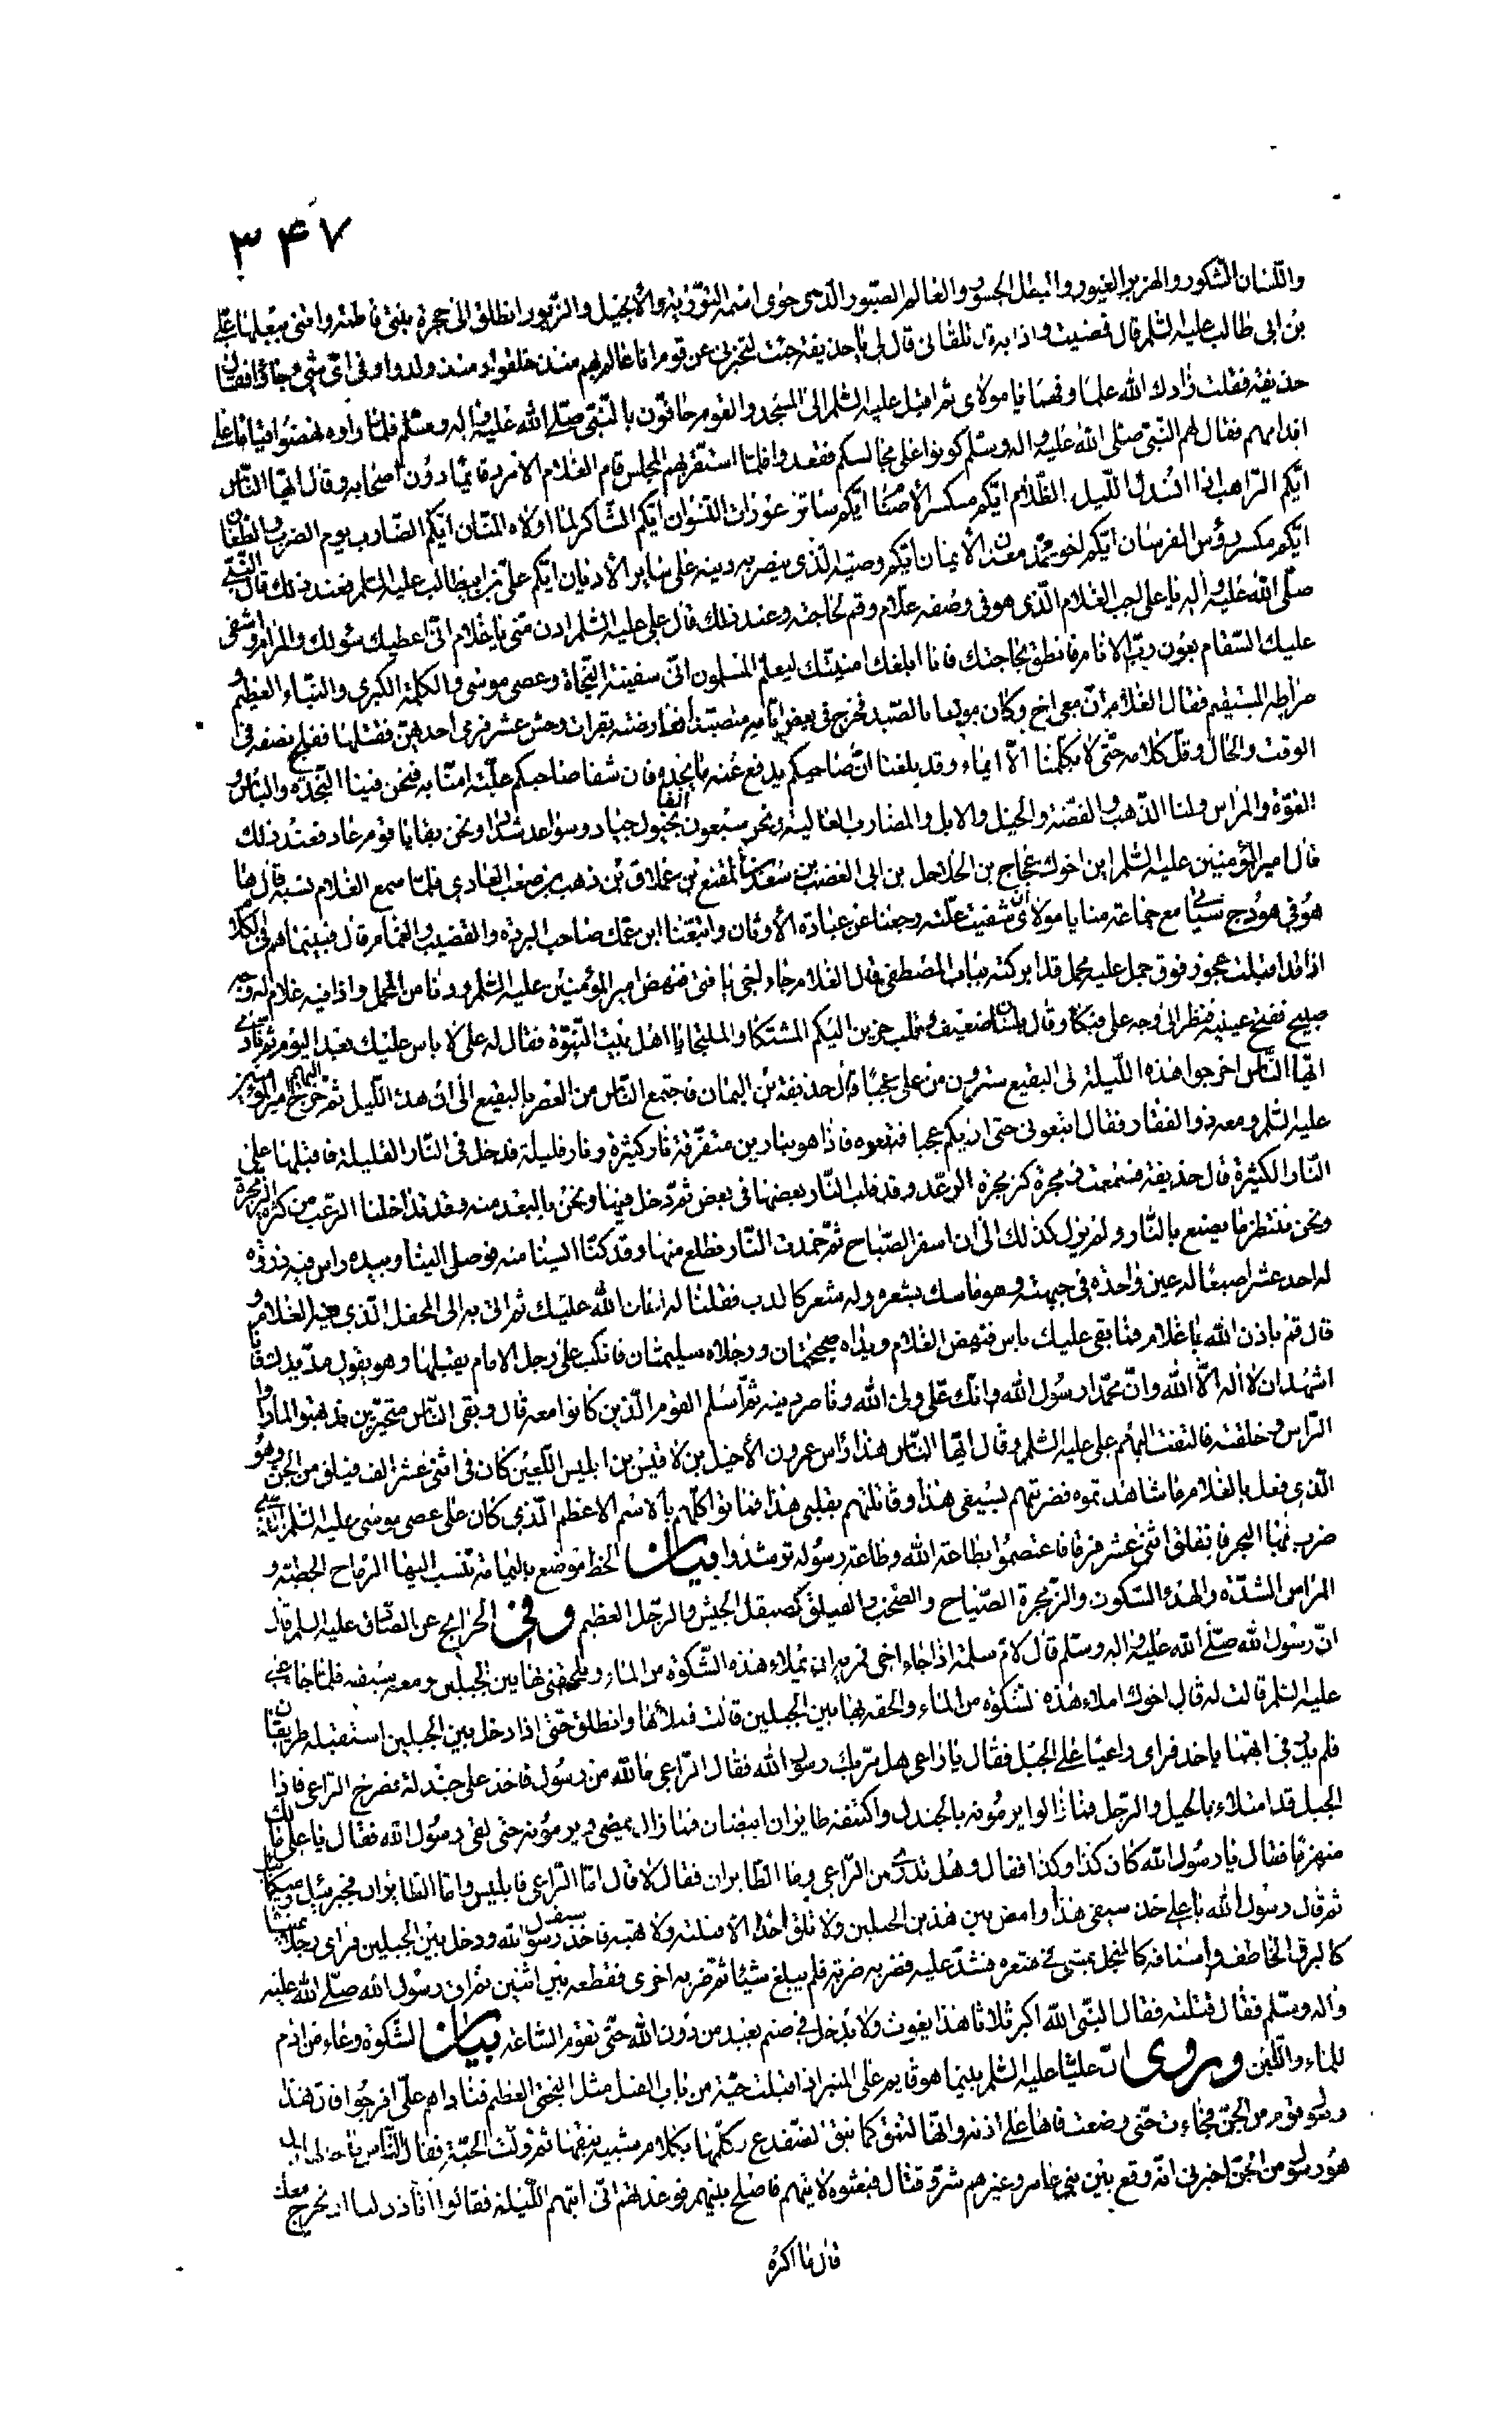 ٣٤٧
واللسان الشكور والهزبر الغيور والبطل الجسور والعالم الصبور الذى حوى اسمه التورية والانجيل والزبور انطلق الى حجرة بنتى فاطمة وائتنى ببعلها على
بن ابى طالب عليه السلم قال فمضيت واذا به قد تلقانى قال لى يا حذيفة جئت لتخبرنى عن قوم انا عالم بهم منذ خلقوا ومنذ ولدوا وفى اى شىء جاؤا فقال
حذيفة فقلت زادك الله علما وفهما يا مولاى ثم اقبل عليه السلم الى المسجد والقوم حافون بالنبى صلى الله عليه واله وسلم فلما راوه نهضوا قياما على
اقدامهم فقال لهم النبى صلى الله عليه واله وسلم كونوا على مجالسكم فقعدوا فلما استقر بهم المجلس قام الغلام الامرد قائما دون اصحابه وقال ايها الناس
ايكم الراهب اذا انسدل الليل الظلام ايكم مكسر الاصنام ايكم ساتر عورات النسوان ايكم الشاكر لما اولاه المنان ايكم الضارب يوم الضرب والطعان
ايكم مكسر رؤس الفرسان ايكم اخو محمد معدن الايمان ايكم وصيه الذى ينصر به دينه على ساير الاديان ايكم على بن ابيطالب عليه السلم فعند ذلك قال النبى
صلى الله عليه واله يا على اجب الغلام الذى هو فى وصفه علام وقم لحاجته وعند ذلك قال على عليه السلم ادن منى يا غلام انى اعطيك سؤلك والمرام واشفى
عليك السقام بعون رب الانام فانطق بحاجتك فانا ابلغك امنيتك ليعلم المسلمون انى سفينة النجاة وعصى موسى والكلمة الكبرى والنباء العظيم و
صراطه المستقيم فقال الغلام ان معى اخ وكان مولعا بالصيد فخرج فى بعض ايامه متصيدا فعارضته بقرات وحش عشر فرمى احديهن فقتلها ففلج نصفه فى
الوقت والحال وقل كلامه حتى لا يكلمنا الا ايماء وقد بلغنا ان صاحبكم يدفع عنه ما يجده فان شفا صاحبكم علته امنا به فنحن فينا النجدة والباس و
القوة والمراس ولنا الذهب والفضة والخيل والابل والمضارب العالية ونحن سبعون الفا بخيول جياد وسواعد شداد ونحن بقايا قوم عاد فعند ذلك
قال امير المؤمنين عليه السلم اين اخوك عجاج بن الحلاحل بن ابى الغضب بن سعد بن المقنع بن عملاق بن ذهب بن صعب العادى فلما سمع الغلام نسبه قال ها
هو فى هودج سياتى مع جماعة منا يا مولاى ان شفيت علته رجعنا عن عبادة الاوثان واتبعنا ابن عمك صاحب البردة والقضيب والغمام قال فبينما هم فى الكلام
اذ قد اقبلت عجوز فوق جمل عليه محمل قد ابركته بباب المصطفى قال الغلام جاء اخى يا فتى فنهض امير المؤمنين عليه السلم ودنا من المحمل واذا فيه غلام له وجه
صبيح ففتح عينيه فنظر الى وجه على فبكا وقال بلسان ضعيف وقلب حزين اليكم المشتكا والملتجا يا اهل بيت النبوة فقال له على لا باس عليك بعد اليوم ثم نادى
ايها الناس اخرجوا هذه الليلة الى البقيع سترون من على عجبا قال حذيفة بن اليمان فاجتمع الناس من العصر بالبقيع الى ان هدء الليل ثم خرج اليهم امير المؤمنين
عليه السلم ومعه ذو الفقار فقال اتبعونى حتى اريكم عجبا فتبعوه فاذا هو بنارين متفرقة نار كثيرة ونار قليلة فدخل فى النار القليلة فاقبلها على
النار الكثيرة قال حذيفة فسمعت زمجرة كزمجرة الرعد وقد قلب النار بعضها فى بعض ثم دخل فيها ونحن بالبعد منه وقد تداخلنا الرعب من كثرة زمجرة
ونحن ننتظر ما يصنع بالنار ولم يزل كذلك الى ان اسفر الصباح ثم خمدت النار فطلع منها وقد كنا ايسنا منه فوصل الينا وبيده راس فيه ذروة
له احد عشر اصبعا له عين واحدة فى جبهته وهو ماسك بشعره وله شعر كالدب فقلنا له اعان الله عليك ثم اتى به الى المحفل الذى فيه الغلام و
قال قم باذن الله يا غلام فما بقى عليك باس فنهض الغلام ويداه صحيحتان ورجلاه سليمتان فانكب على رجل الامام يقبلها وهو يقول مد يدك فانا
اشهد ان لا اله الا الله وان محمدا رسول الله وانك على ولى الله وناصر دينه ثم اسلم القوم الذين كانوا معه قال وبقى الناس متحيرين قد بهتوا لما راوا
الراس وخلقته فالتفت اليهم على عليه السلم وقال ايها الناس هذا راس عمرو بن الاخيل بن لاقيس بن ابليس اللعين كان فى اثنى عشر الف فيلق من الجن وهو
الذى فعل بالغلام ما شاهدتموه فضربتهم بسيفى هذا وقاتلتهم بقلبى هذا فماتوا كلهم بالاسم الاعظم الذى كان على عصى موسى عليه السلم التى
ضرب بها البحر فانفلق اثنى عشر فرقا فاعتصموا بطاعة الله وطاعة رسوله ترشدوا بيان الخط موضع باليمامة تنسب اليها الرماح الخطية و
المراس الشدة والهدء السكون والزمجرة الصياح والصخب والفيلق كصيقل الجيش والرجل العظيم وفى الخرايج عن الصادق عليه السلم قال
ان رسول الله صلى الله عليه واله وسلم قال لام سلمة اذا جاء اخى فمريه ان يملاء هذه الشكوة من الماء ويلحقنى بها بين الجبلين ومعه سيفه فلما جاء على
عليه السلم قالت له قال اخوك املاء هذه الشكوة من الماء والحقه بها بين الجبلين قالت فملأها وانطلق حتى اذا دخل بين الجبلين استقبله طريقان
فلم يدر فى ايهما ياخذ فراى راعيا على الجبل فقال يا راعى هل مر بك رسول الله فقال الراعى ما لله من رسول فاخذ على جندلة فصرخ الراعى فاذا
الجبل قد امتلاء بالخيل والرجل فما زالوا يرمونه بالجندل واكتنفه طايران ابيضان فما زال يمضى ويرمونه حتى لقى رسول الله فقال يا على مالك
منهزما فقال يا رسول الله كان كذا وكذا فقال وهل تدرى من الراعى وما الطايران فقال لا قال اما الراعى فابليس واما الطايران فجبرئيل وميكائيل
ثم قال رسول الله يا على خذ سيفى هذا وامض بين هذين الجبلين ولا تلق احدا الا قتلته ولا تهبه فاخذ سيف رسول الله ودخل بين الجبلين فراى رجلا عيناه
كالبرق الخاطف واسنانه كالمنجل يمشى فى شعره فشد عليه فضربه ضربة فلم يبلغ شيئا ثم ضربه اخرى فقطعه بين اثنين ثم اتى رسول الله صلى الله عليه
واله وسلم فقال قتلته فقال النبى الله اكبر ثلاثا هذا يغوث ولا يدخل فى صنم يعبد من دون الله حتى تقوم الساعة بيان الشكوة وعاء من ادم
للماء واللبن وروى ان عليا عليه السلم بينما هو قايم على المنبر اذ اقبلت حية من باب الفيل مثل البختى العظيم فناداهم على افرجوا فان هذا
رسول قوم من الجن فجاءت حتى وضعت فاها على اذنه وانها لتنق كما ينق الضفدع وكلمها بكلام شبيه بنقها ثم ولت الحية فقال الناس
هو رسول من الجن اخبرنى انه وقع بين بنى عامر وغيرهم شر وقتال فبعثوه لاتيهم فاصلح بينهم فوعدتهم انى اتيهم الليلة فقالوا اتاذن لنا ان نخرج معك
قال ما اكره